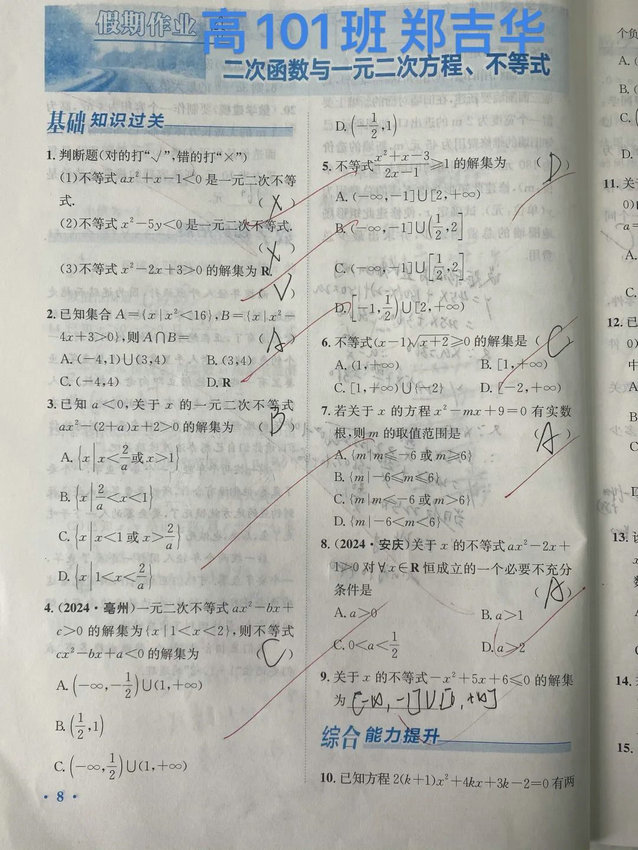 假期作业
高101班 郑吉华
二次函数与一元二次方程、不等式
基础 知识过关
1. 判断题(对的打“√”,错的打“×”)
(1)不等式 ax²+x-1<0 是一元二次不等
式. ( X )
(2)不等式 x²-5y<0 是一元二次不等式.
( X )
(3)不等式 x²-2x+3>0 的解集为 R.
( √ )
2. 已知集合 A={x|x²<16},B={x|x²-
4x+3>0},则 A∩B= ( A )
A. (-4,1)∪(3,4) B. (3,4)
C. (-4,4) D. R
3. 已知 a<0,关于 x 的一元二次不等式
ax²-(2+a)x+2>0 的解集为 ( B )
A. {x|x<2/a 或 x>1}
B. {x|2/a<x<1}
C. {x|x<1 或 x>2/a}
D. {x|1<x<2/a}
4. (2024·亳州)一元二次不等式 ax²-bx+
c>0 的解集为{x|1<x<2},则不等式
cx²-bx+a<0 的解集为 ( C )
A. (-∞,-1/2)∪(1,+∞)
B. (1/2,1)
C. (-∞,1/2)∪(1,+∞)
· 8 ·
D. (-1/2,1)
5. 不等式 (x²+x-3)/(2x-1)≥1 的解集为 ( D )
A. (-∞,-1]∪[2,+∞)
B. (-∞,-1]∪(1/2,2]
C. (-∞,-1]∪[1/2,2]
D. [-1,1/2)∪[2,+∞)
6. 不等式(x-1)√x+2≥0 的解集是 ( C )
A. (1,+∞) B. [1,+∞)
C. [1,+∞)∪{-2} D. [-2,+∞)
7. 若关于 x 的方程 x²-mx+9=0 有实数
根,则 m 的取值范围是 ( A )
A. {m|m≤-6 或 m≥6}
B. {m|-6≤m≤6}
C. {m|m<-6 或 m>6}
D. {m|-6<m<6}
8. (2024·安庆)关于 x 的不等式 ax²-2x+
1>0 对∀x∈R 恒成立的一个必要不充分
条件是 ( A )
A. a>0 B. a>1
C. 0<a<1/2 D. a>2
9. 关于 x 的不等式-x²+5x+6≤0 的解集
为
综合 能力提升
10. 已知方程 2(k+1)x²+4kx+3k-2=0 有两
个负
A. (
B. (
C.
D.
11. 关于
0)的
a=
A.
B.
C.
D.
12. 已
0)
中
A.
B.
C.
D.
13.
14.
15.